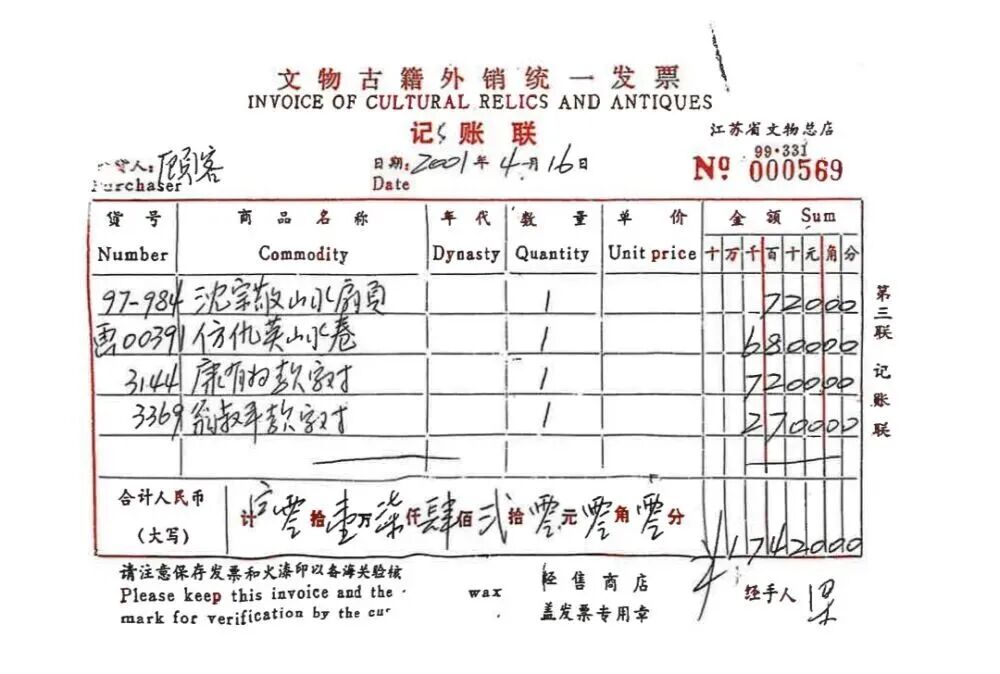 文物古籍外销统一发票
INVOICE OF CULTURAL RELICS AND ANTIQUES
记账联
江苏省文物总店
99·331
Nº 000569
货人：顾客
Purchaser
日期：2001年4月16日
Date
货号 商品名称 年代 数量 单价 金额 Sum
Number Commodity Dynasty Quantity Unit price 十万千百十元角分
97-984 沈宗敬山水扇页 1 72000
画00391 仿仇英山水卷 1 680000
3144 康有为款字对 1 720000
3369 翁叔平款字对 1 270000
合计人民币
（大写）
计 零拾壹万柒仟肆佰贰拾零元零角零分
¥1742000
第三联 记账联
请注意保存发票和火漆印以备海关验核
Please keep this invoice and the wax
mark for verification by the cu
经售商店
盖发票专用章
经手人